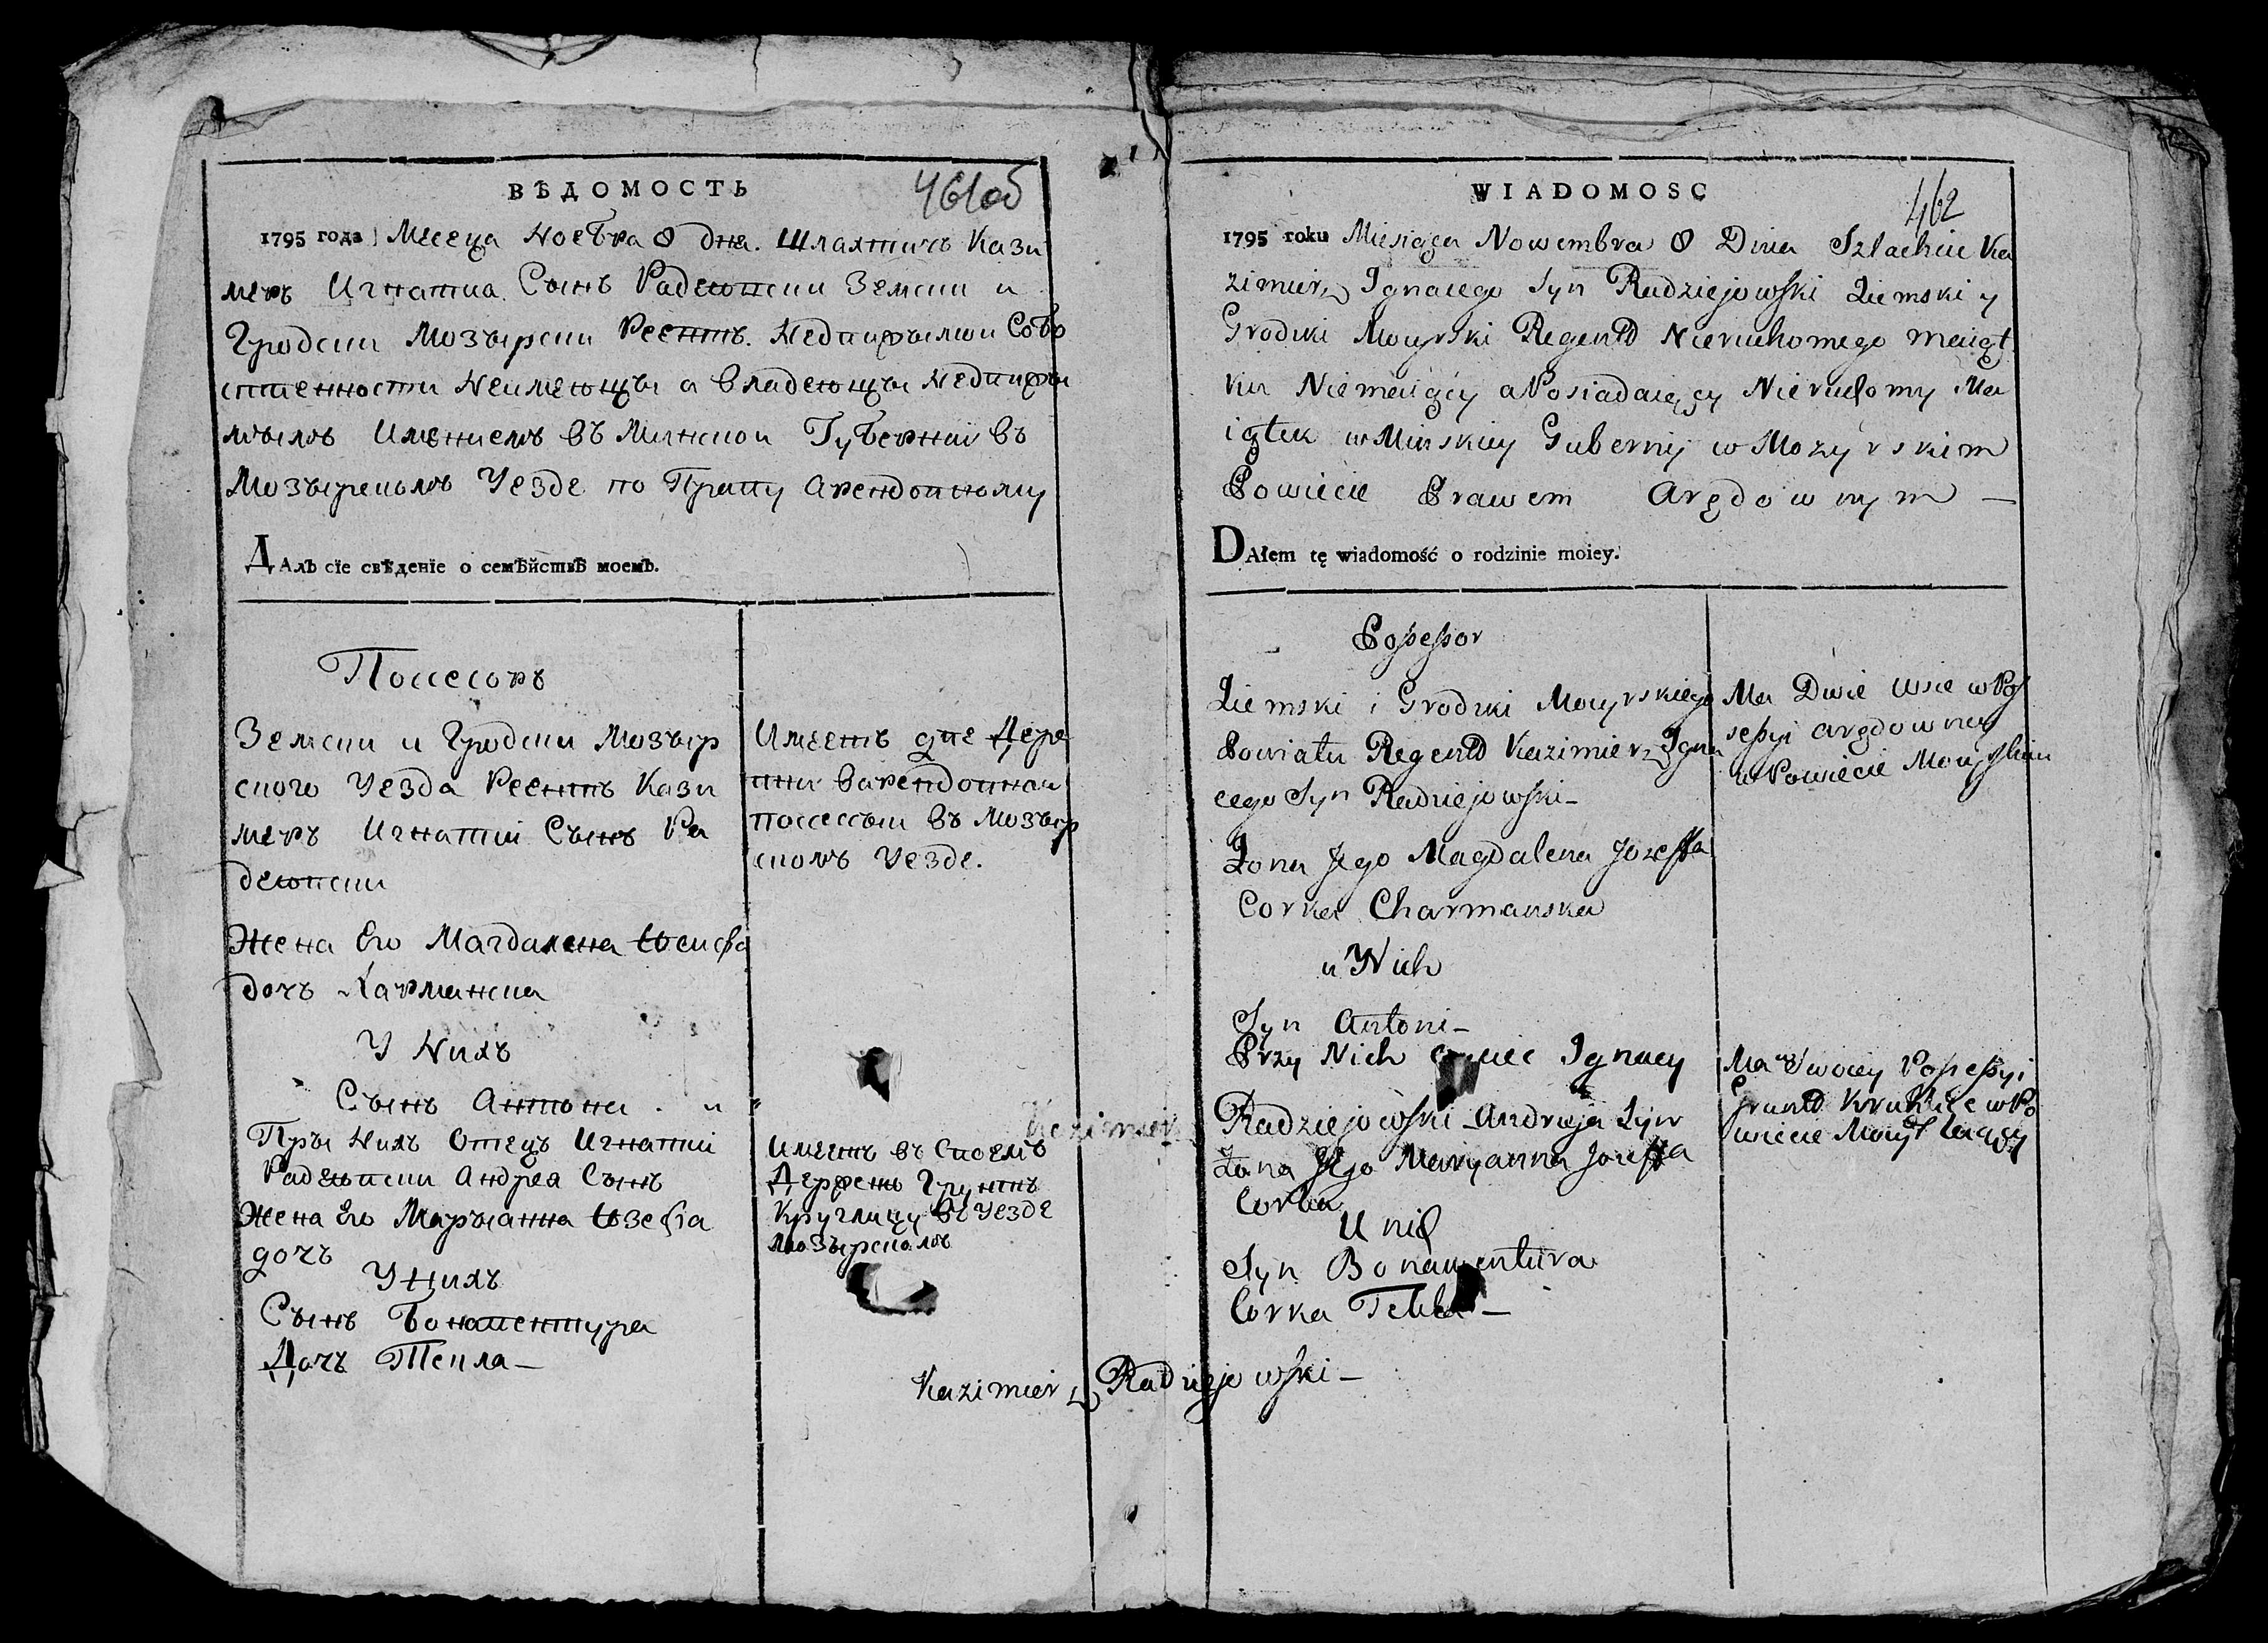 ВѢДОМОСТЬ
461об
1795 года Месеца Ноебра 8 дна. Шлахтичъ Кази
меръ Игнатиа Сынъ Радеювски Земски и
Гродски Мозырски Реентъ. Недвифымои Собо
ственности Неимеющы а владеющы Недвифы
мымъ Имениемъ въ Минской Губернии въ
Мозырскомъ Уезде по Праву арендовному
Далъ сїе свѣденїе о семѣйствѣ моемъ.
Поссесоръ
Земски и Гродски Мозыр
ского Уезда Реентъ Кази
меръ Игнатии Сынъ Ра
деювски
Жена Его Магдалена Юсифа
дочъ Харманска
У Нихъ
Сынъ Антони . и
Пры Нихъ Отецъ Игнатии
Радеювски Андрея Сынъ
Жена Его Марыанна Юзефа
дочъ
У Нихъ
Сынъ Бонавентура
Дочъ Текла —
Имеетъ две Дере
вни варендовнаи
поссессыи въ Мозыр
скомъ Уезде.
Имеетъ въ Своемъ
Грунтъ
Круглицу въ Уезде
Мозырскомъ
Kazimierz Radziejowski —
WIADOMOSC
462
1795 roku Miesiąca Nowembra 8 Dnia Szlachcic Ka
zimierz Ignacego Syn Radziejowski Ziemski y
Grodzki Mozyrski Regentd Nieruchomego maiąt
ku Niemaiący a Posiadaiący Nieruchomy Ma
iątek w Minskiey Gubernij w Mozyrskim
Powiecie Prawem Arędownym —
DAłem tę wiadomość o rodzinie moiey.
Possessor
Ziemski i Grodzki Mozyrskiego
Powiatu Regentd Kazimierz Igna
cego Syn Radziejowski —
Żona Jego Magdalena Jozeffa
Corka Charmanska
u Nich
Syn Antoni —
Przy Nich Ignacy
Radziejowski Andrzeja Syn
Żona Jego Maryanna Jozeffa
Corka
U nich
Syn Bonawentura
Corka Tekla —
Ma Dwie wsie w Pos
sessyi arędowney
w Powiecie Mozyrskim
Ma w Swoiey Possessyi
Gruntd w Po
wiecie Mozyr leżący
Kazimierz